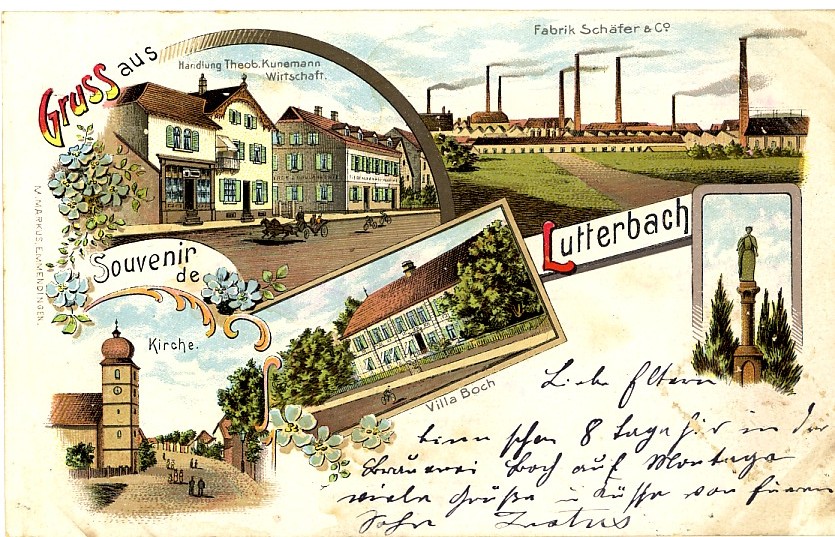 Gruss aus
Handlung Theob. Kunemann
Wirtschaft.
Fabrik Schäfer & Co
Souvenir
de
Lutterbach
M. MARKUS, EMMENDINGEN.
Kirche.
Villa Boch
Liebe Eltern
bin schon 8 Tage hir in der
Brauerei Boch auf Montage
viele Grüße u Küsse von Eurem
Sohn